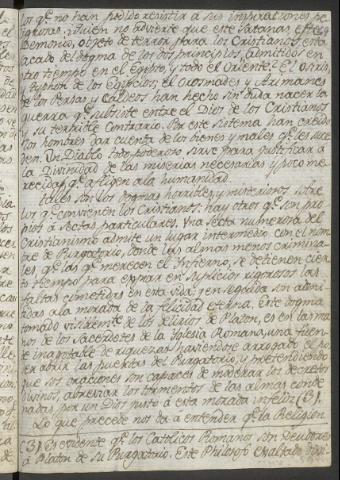 los q.e no han podido resistir a sus inspiraciones pe-
ligrosas. ¿Quien no advierte que este Satanas, este
Demonio, objeto de terror para los Cristianos, está
sacado del dogma de los dos principios, admitido en
otro tiempo en el Egipto, y todo el Oriente? El Osiris,
y Typhon de los Egipcios, el Orosmades y Arimanes
de los Persas y Caldeos han hecho sin duda nacer la
guerra q.e subsiste entre el Dios de los Cristianos
y su terrible contrario. Por este sistema han creido
los hombres dar cuenta de los bienes y males q.e les suce-
den. Un Diablo todopoderoso sirve para justificar á
la Divinidad de las miserias necesarias y poco me-
recidas q.e afligen a la humanidad.
Tales son los dogmas horribles y misteriosos sobre
los q.e convienen los Cristianos; hay otros q.e son pro-
pios á sectas particulares. Una secta numerosa del
Cristianismo admite un lugar intermedio con el nom-
bre de Purgatorio, donde las almas menos crimina-
les q.e las q.e merecen el Infierno, se detienen cier-
to tiempo para expiar en suplicios rigorosos las
faltas cometidas en esta vida; y en seguida son admi-
tidas a la morada de la felicidad eterna. Este dogma
tomado visiblem.te de los delirios de Platon, es en las ma-
nos de los Sacerdotes de la Iglesia Romana, una fuen-
te inagotable de riquezas; haviendose arrogado el po-
der abrir las puertas del Purgatorio, y pretendiendo
que sus oraciones son capaces de moderar los decretos
divinos, abreviar los tormentos de las almas conde-
nadas por un Dios justo á esta morada infeliz (3).
Lo que precede nos da a entender q.e la Religion
(3) Es evidente q.e los Catolicos Romanos son Deudores
á Platon de su Purgatorio. Este Philosofo exaltado